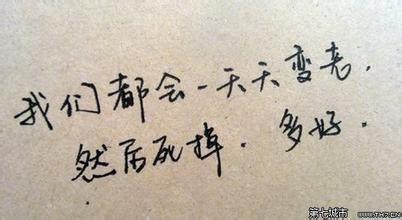 我们都会一天天变老.
然后死掉.多好.
第七城市